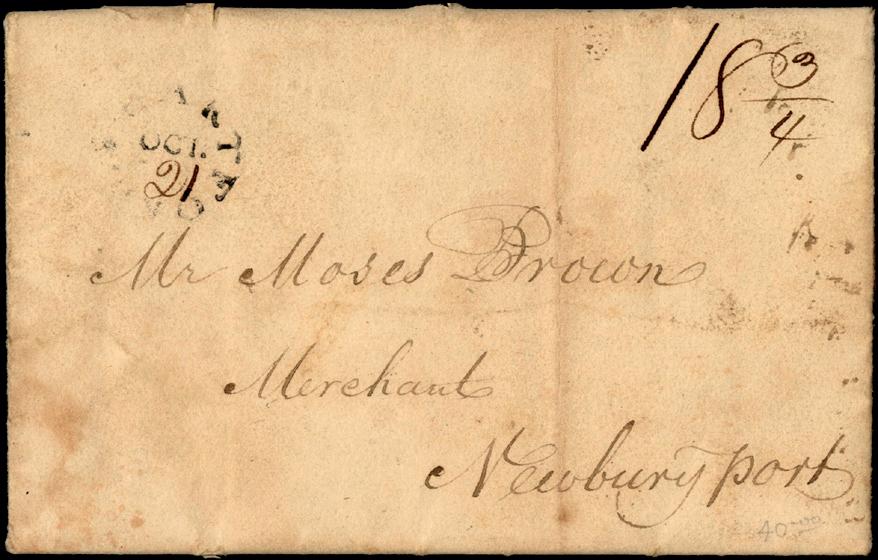 18 3/4
OCT.
21
Mr Moses Brown
Merchant
Newburyport
40.00